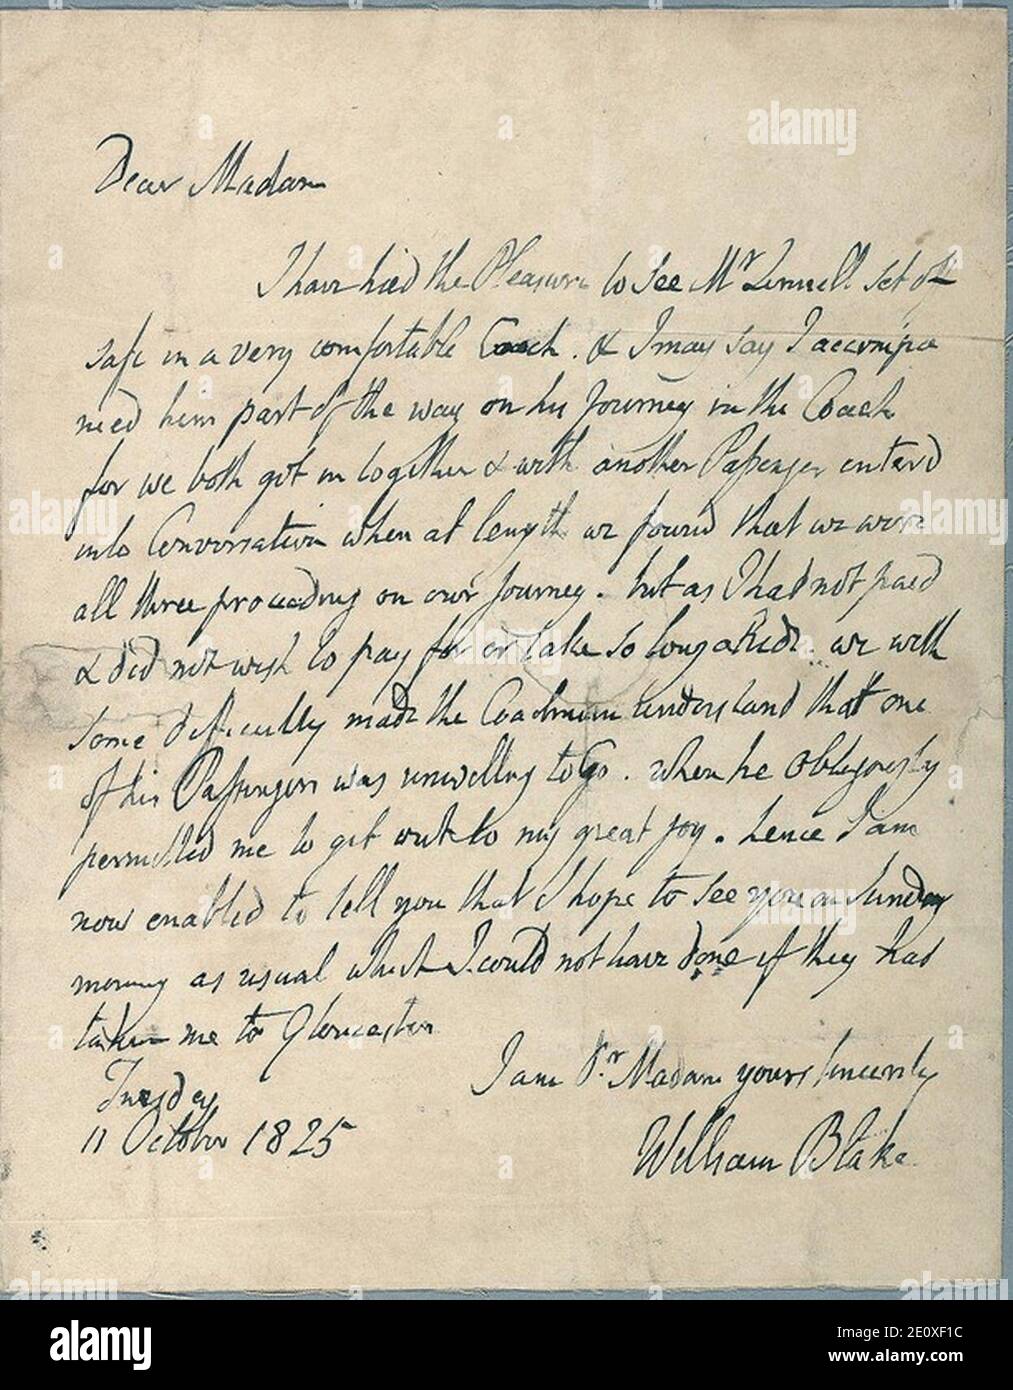 Dear Madam
I have had the Pleasure to see Mr Linnell set off
safe in a very comfortable Coach. & I may say I accompa
nied him part of the way on his Journey in the Coach
for we both got in together & with another Passenger enterd
into Conversation when at length we found that we were
all three proceeding on our Journey. but as I had not paid
& did not wish to pay for or take so long a Ride. we with
some difficulty made the Coachman understand that one
of his Passengers was unwilling to Go. when he obligingly
permitted me to get out to my great joy. hence I am
now enabled to tell you that I hope to see you on Sunday
morning as usual which I could not have done if they had
taken me to Gloucester
I am Dr Madam yours sincerely
Tuesday
11 October 1825
William Blake
alamy
a
Image ID: 2E0XF1C
www.alamy.com